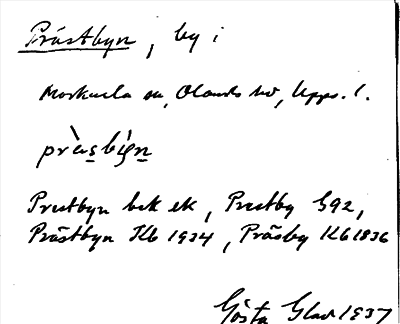 Prästbyn, by i
Morkarla sn, Olands hd, Upps. l.
pràsbı̀n
Prestbyn bek ek, Prestby G92,
Prästbyn Kb 1934, Präsby Kb 1836
Gösta Glad 1937